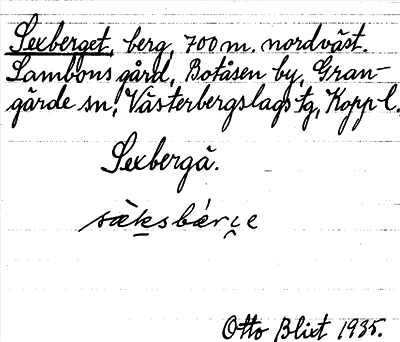 Sexberget, berg, 700 m. nordväst.
Lambons gård, Botåsen by, Gran-
gärde sn, Västerbergslags tg, Kopp. l.
Sexbergä.
Otto Blixt 1935.